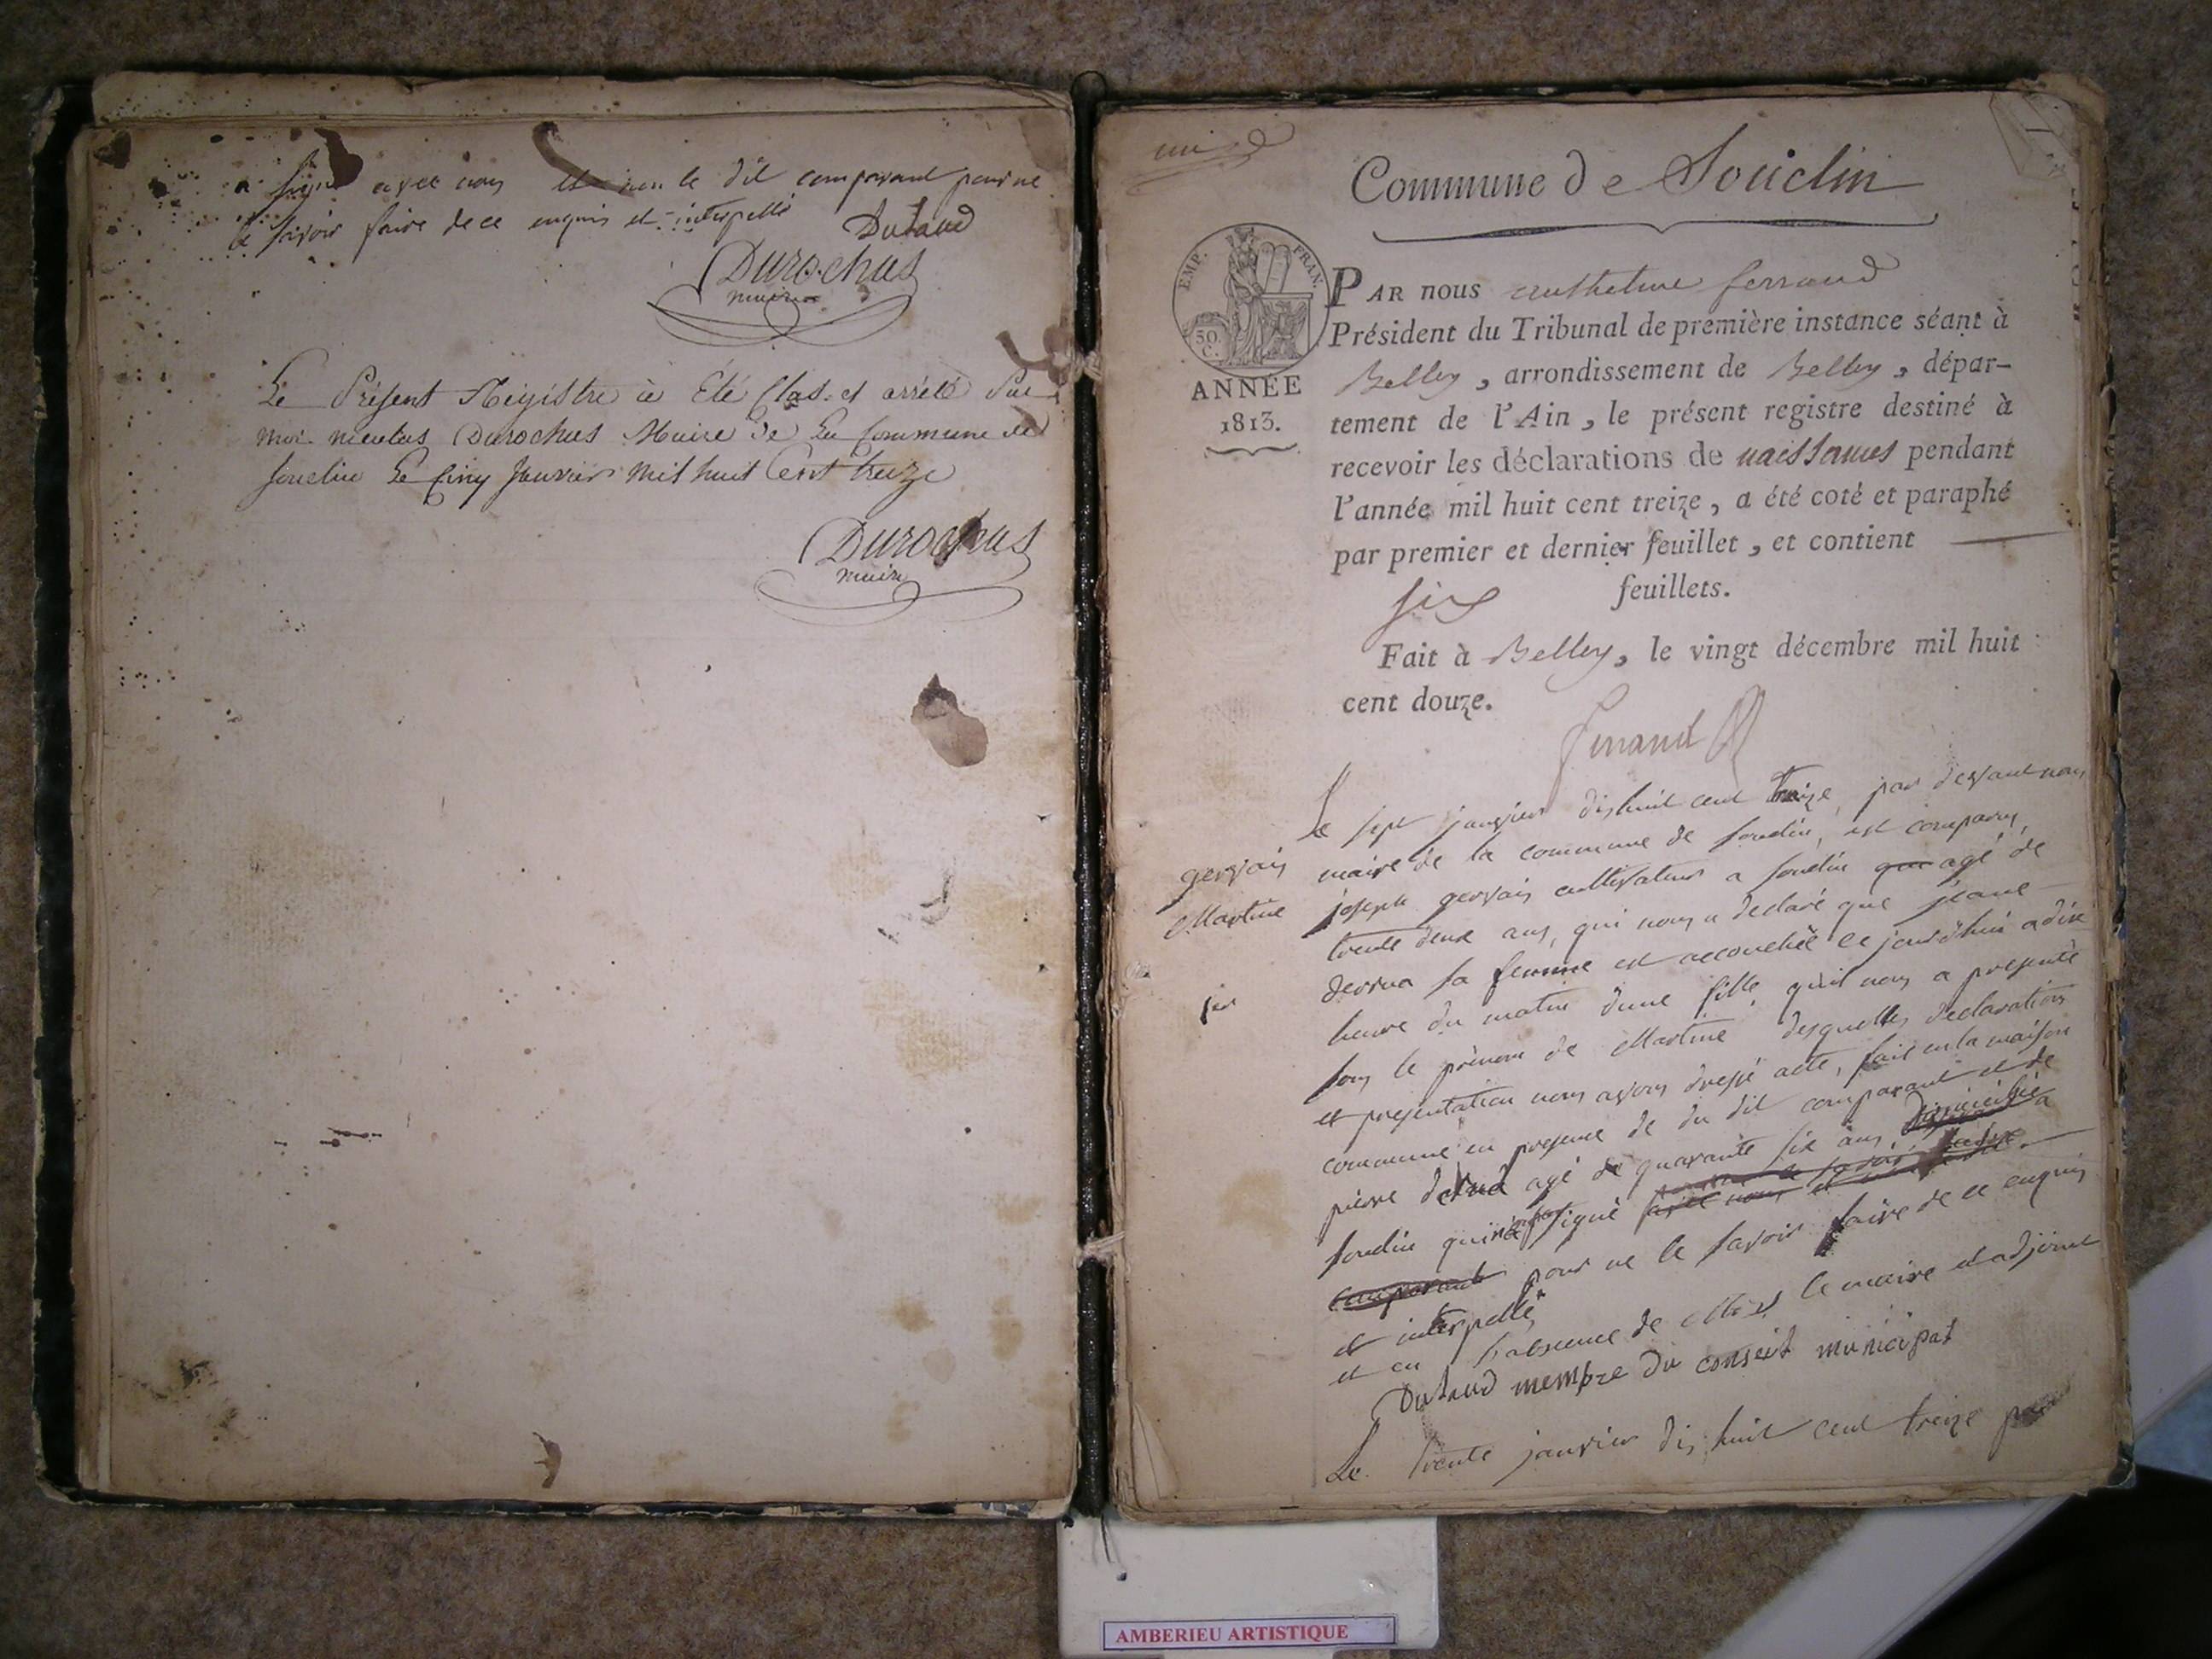 a signé avec nous et non le dit comparant pour ne
le savoir faire de ce enquis et interpellé
Dutaud
Durochus
maire
Le Présent Régistre à Eté Clos et arrété Par
moi Durochus Maire de La Commune de
Souclin Le Cinq Janvier mil huit Cent treize
Durochus
maire
Commune de Souclin
EMP. FRAN.
50. C.
ANNÉE
1813.
PAR nous ferrand
Président du Tribunal de première instance séant à
Belley, arrondissement de Belley, dépar-
tement de l'Ain, le présent registre destiné à
recevoir les déclarations de naissances pendant
l'année mil huit cent treize, a été coté et paraphé
par premier et dernier feuillet, et contient
six feuillets.
Fait à Belley, le vingt décembre mil huit
cent douze.
ferrand
gervais
Martine
1er
Le sept janvier dix huit cent treize, par devant nous
maire de la commune de souclin, est comparu
joseph gervais cultivateur a souclin agé de
trente deux ans, qui nous a declaré que jeane
sa femme est accouchée ce jourd'hui a dix
heure du matin d'une fille qu'il nous a presenté
sous le prénom de Martine desquelles declaration
et presentation nous avons dressé acte, fait en la maison
commune en presence de du dit comparant et de
pierre agé de quarante six ans, domicilié a
souclin qui signé avec nous et
comparant pour ne le savoir faire de ce enquis
et interpellé
et en l'absence de le maire et adjoint
Dutaud membre du conseit municipat
Le trente janvier dix huit cent treize par
AMBERIEU ARTISTIQUE